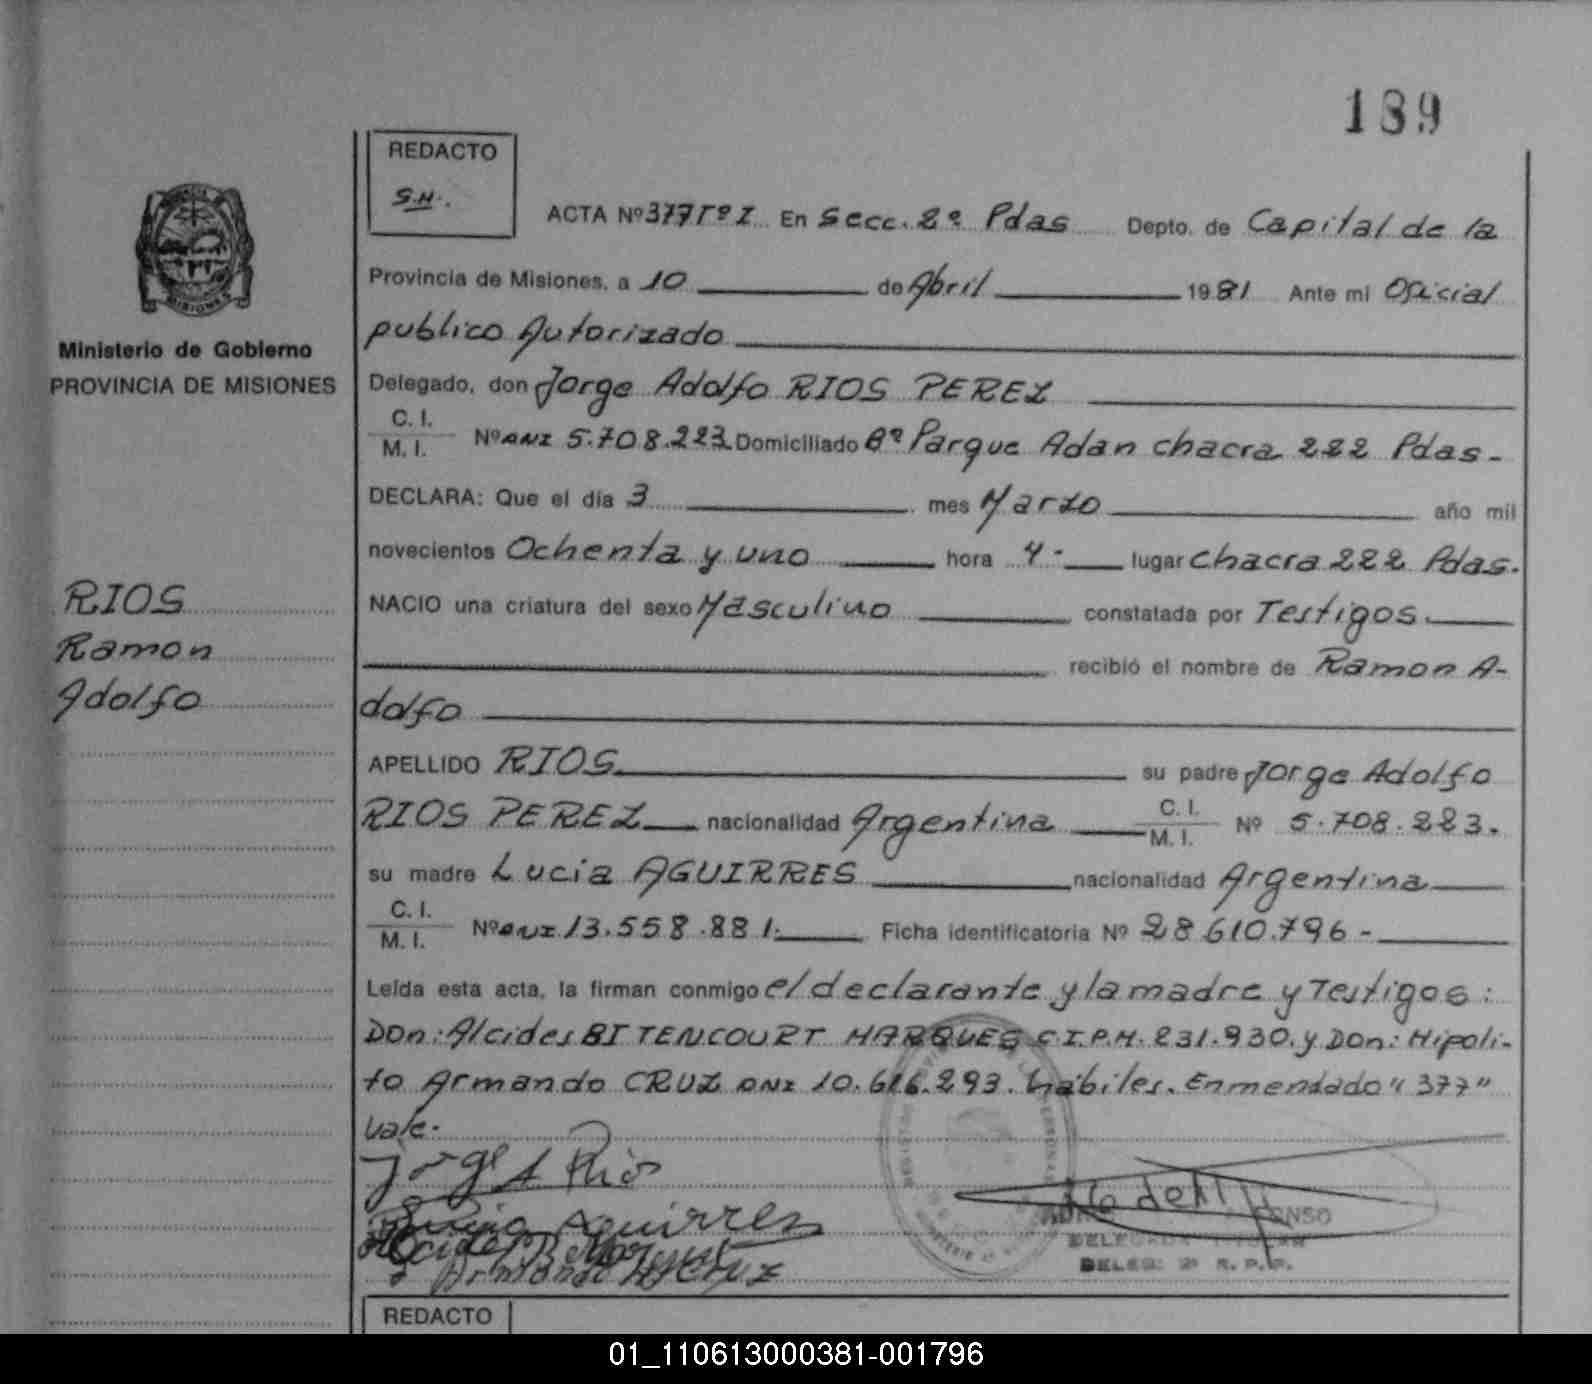 189
REDACTO
S.H.
ACTA Nº 377 Tº I En Secc. 2º Pdas Depto. de Capital de la
Provincia de Misiones, a 10 de Abril 1981 Ante mi Oficial
publico Autorizado
Delegado, don Jorge Adolfo RIOS PEREZ
C. I.
M. I. Nº DNI 5.708.223 Domiciliado Bº Parque Adan chacra 222 Pdas-
DECLARA: Que el día 3 mes Marzo año mil
novecientos Ochenta y uno hora 4- lugar Chacra 222 Pdas.
NACIO una criatura del sexo Masculino constatada por Testigos.
recibió el nombre de Ramon A-
dolfo
APELLIDO RIOS su padre Jorge Adolfo
RIOS PEREZ nacionalidad Argentina C. I. M. I. Nº 5.708.223.
su madre Lucia AGUIRRES nacionalidad Argentina
C. I.
M. I. Nº DNI 13.558.881. Ficha identificatoria Nº 28610.796-
Leída esta acta, la firman conmigo el declarante y la madre y Testigos:
Don: Alcides BITENCOURT MARQUES C.I.P.M. 231.930. y Don: Hipoli-
to Armando CRUZ DNI 10.616.293. habiles. Enmendado "377"
Vale.
Jorge A Rios
Lucia Aguirres
Armando H Cruz
DELEGADA TITULAR
DELEG. 2ª R.P.P.
Ministerio de Gobierno
PROVINCIA DE MISIONES
RIOS
Ramon
Adolfo
REDACTO
01_110613000381-001796